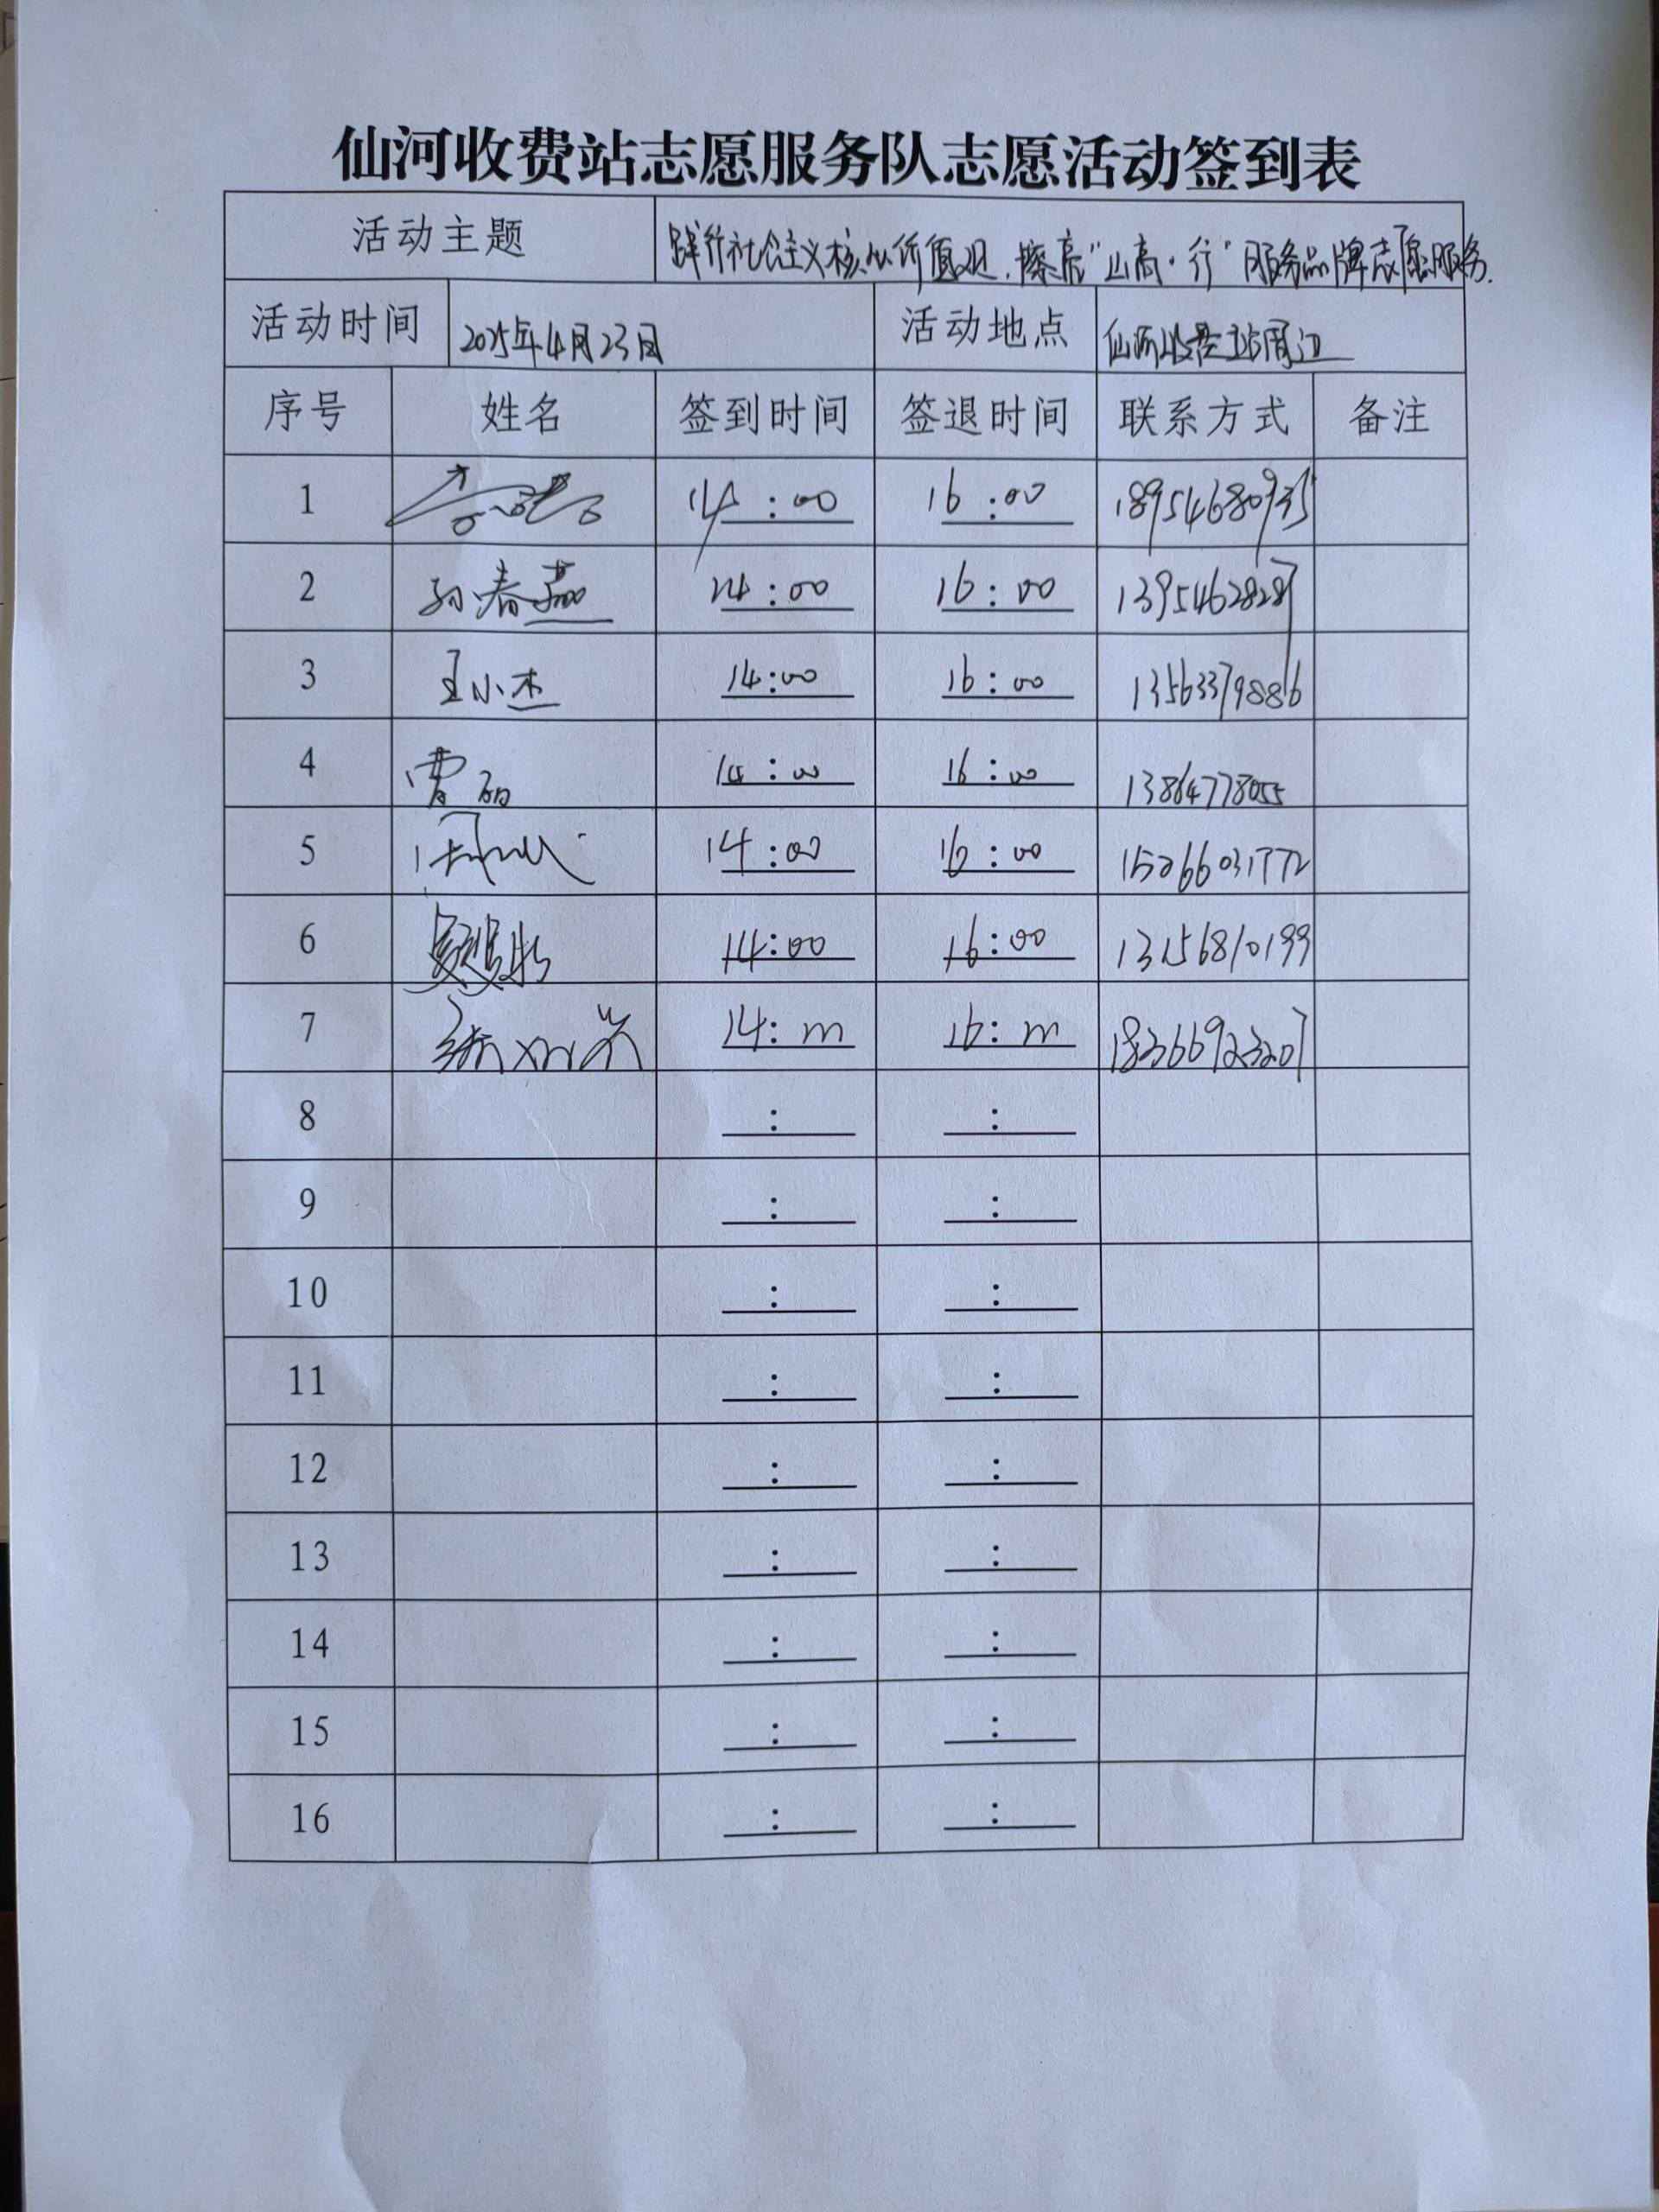 仙河收费站志愿服务队志愿活动签到表
活动主题 践行社会主义核心价值观.擦亮“山高·行”服务品牌志愿服务.
活动时间 2025年4月23日 活动地点 仙河收费站周边
序号 姓名 签到时间 签退时间 联系方式 备注
1 14:00 16:00 18954680935
2 孙春燕 14:00 16:00 13954628287
3 王小杰 14:00 16:00 13563379886
4 曹丽 14:00 16:00 13864778055
5 14:00 16:00 15266031772
6 14:00 16:00 13156810199
7 14:00 16:00 18366923207
8 : :
9 : :
10 : :
11 : :
12 : :
13 : :
14 : :
15 : :
16 : :